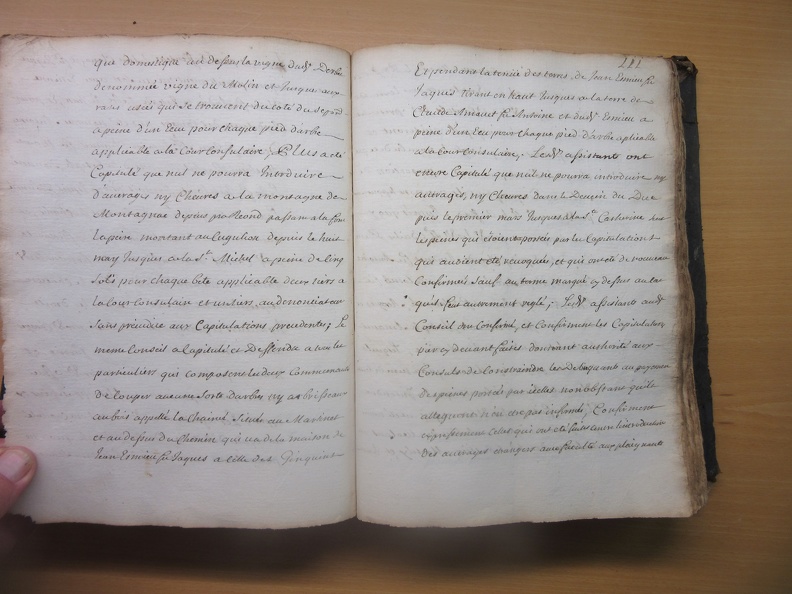 que domestique au dessus la vigne dud.
denommée vigne du Molin et Jusque aux
raisés qui se trouvent du coté du
a peine d'un Ecu pour chaque pied d'arbre
applicable a la Cour Consulaire, Plus a eté
Capitulé que nul ne pourra Introduire
d'averages ny Chevres a la montagne de
Montagnac depuis passant a la
la pène montant au depuis le huit
may Jusques a la St. Michel a peine de Cinq
Sols pour chaque bete applicable deux tiers a
la Cour Consulaire et un tiers au denonciateur
Sans prejudice aux Capitulations precedentes; Le
meme Conseil a Capitulé et Deffendu a tous les
particuliers qui composent les deux Communautés
de Couper aucune Sorte d'arbres ny
au bois appellé la Située au Martinet
et au dessus du Chemin qui va de la maison de
Jean Esmieu fu Jaques a celle des
181
Et pendant la tenue des terres, de Jean Esmieu fu
Jaques tirant en haut Jusques a la terre de
Claude fu Antoine et dud. Esmieu a
peine d'un Ecu pour chaque pied d'arbre aplicable
a la Cour Consulaire; Lesd. assistants ont
encore Capitulé que nul ne pourra introduire ny
averages, ny Chevres dans le du Duc
puis le premier mars Jusques a la Ste. Catherine
les peines qui étoient posées par les Capitulations
qui avoient été revoquées, et qui ont eté de nouveau
Confirmées Sauf au terme marqué cy dessus au cas
qu'il feut autrement reglé; Lesd. assistants aud.
Conseil ont Confirmé, et Confirment les Capitulations
par cy devant faites donnant authorité aux
Consuls de Constraindre les au payement
des peines portées par icelles nonobstant qu'ils
alleguent n'avoir eté pas Confirment
expressement Celles qui ont eté faites
des averages etrangers aux